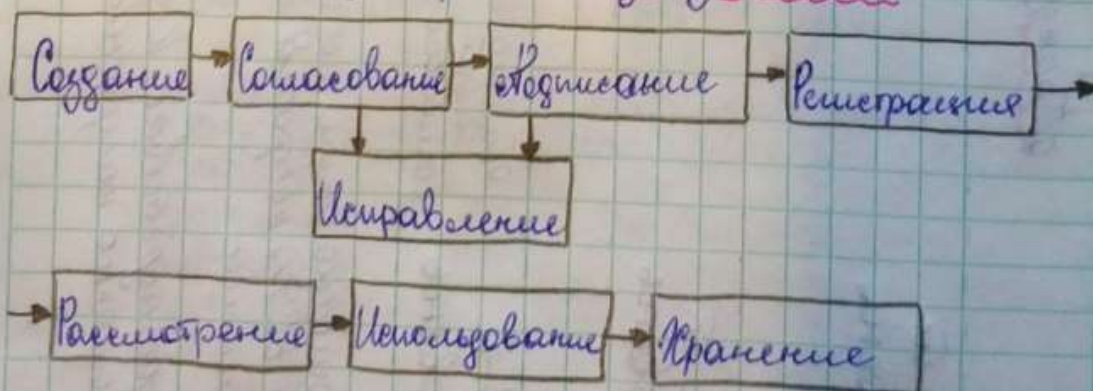 Создание Согласование Подписание Регистрация
Исправление
Рассмотрение Использование Хранение